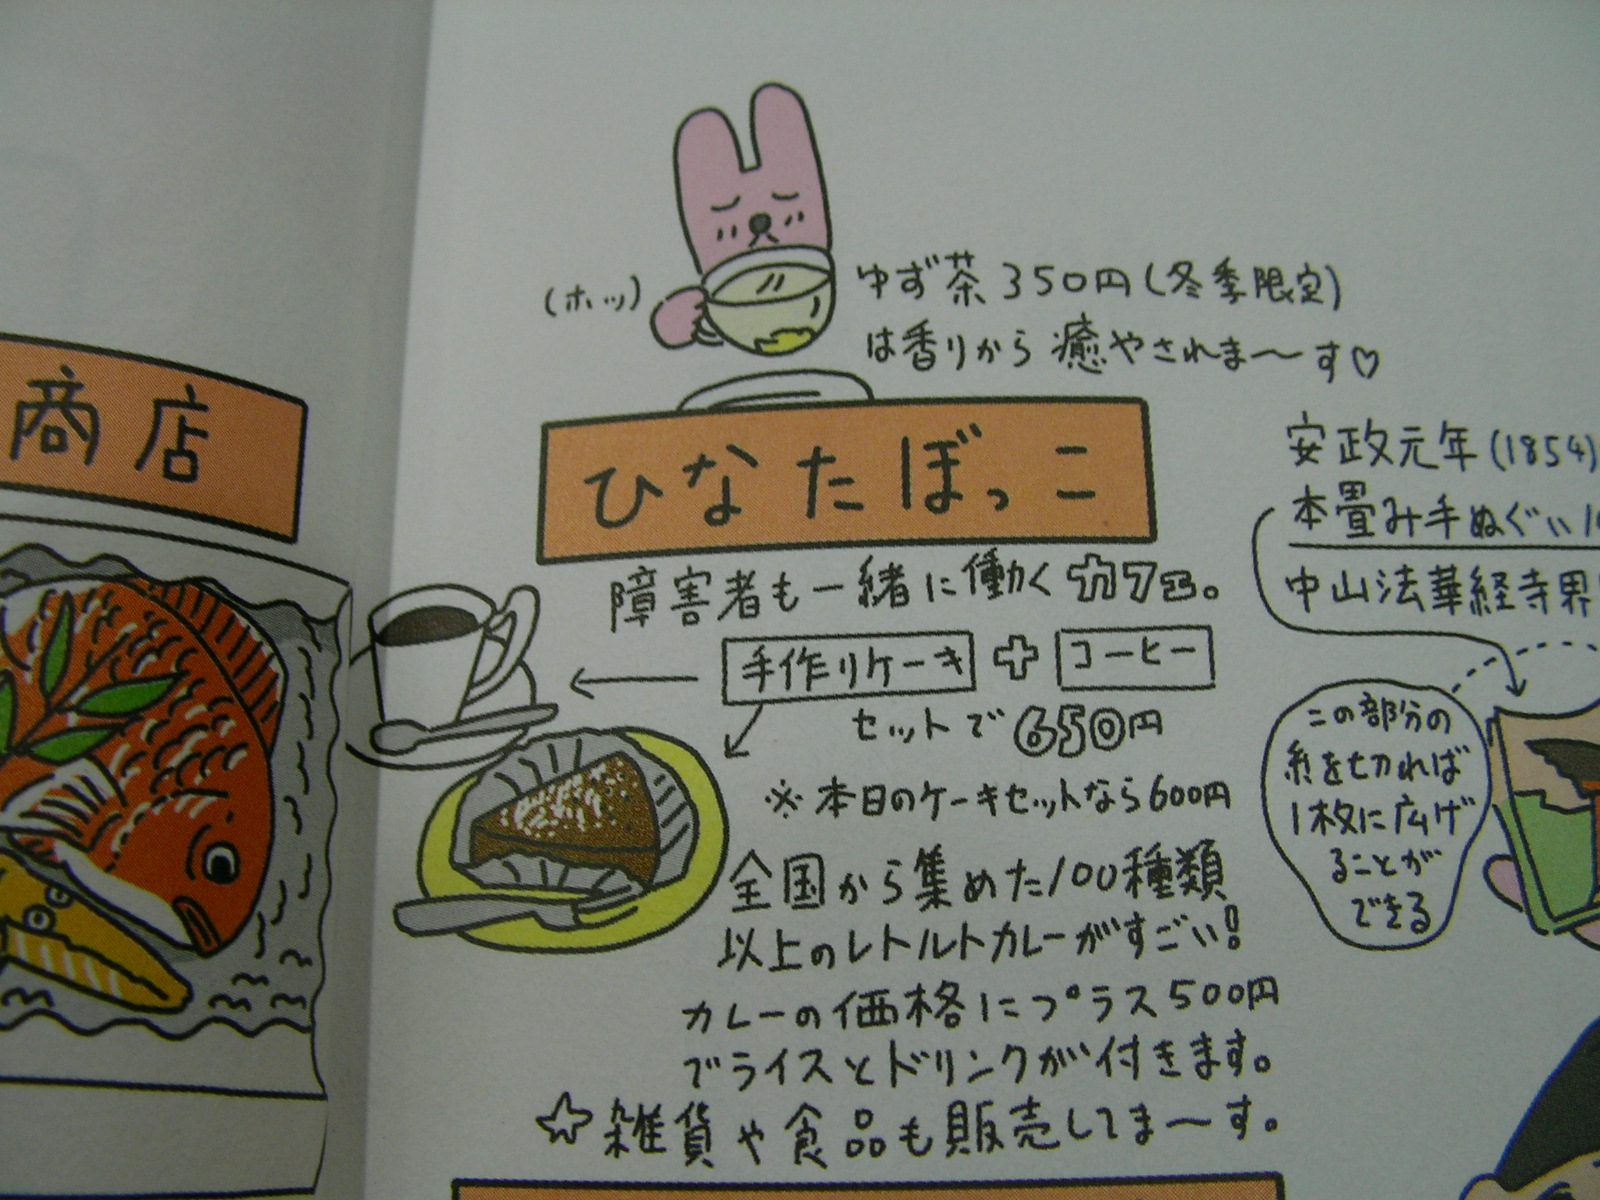 商店
(ホッ)
ゆず茶350円(冬季限定)
は香りから癒やされま〜す♡
ひなたぼっこ
障害者も一緒に働くカフェ。
手作りケーキ+コーヒー
セットで650円
※本日のケーキセットなら600円
全国から集めた100種類
以上のレトルトカレーがすごい!
カレーの価格にプラス500円
でライスとドリンクが付きます。
☆雑貨や食品も販売してま〜す。
安政元年(1854)
本畳み手ぬぐい
中山法華経寺界
この部分の
糸を切れば
1枚に広げ
ることが
できる